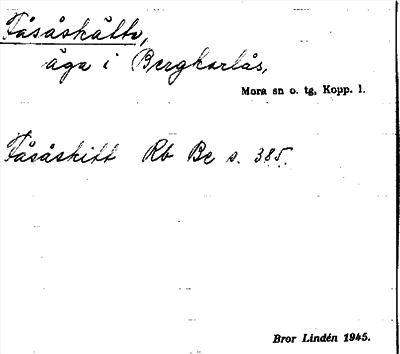 Fåsåskätte,
äga i Bergkarlås,
Mora sn o. tg, Kopp. l.
Fåsåskitt Rb Be s. 385.
Bror Lindén 1945.